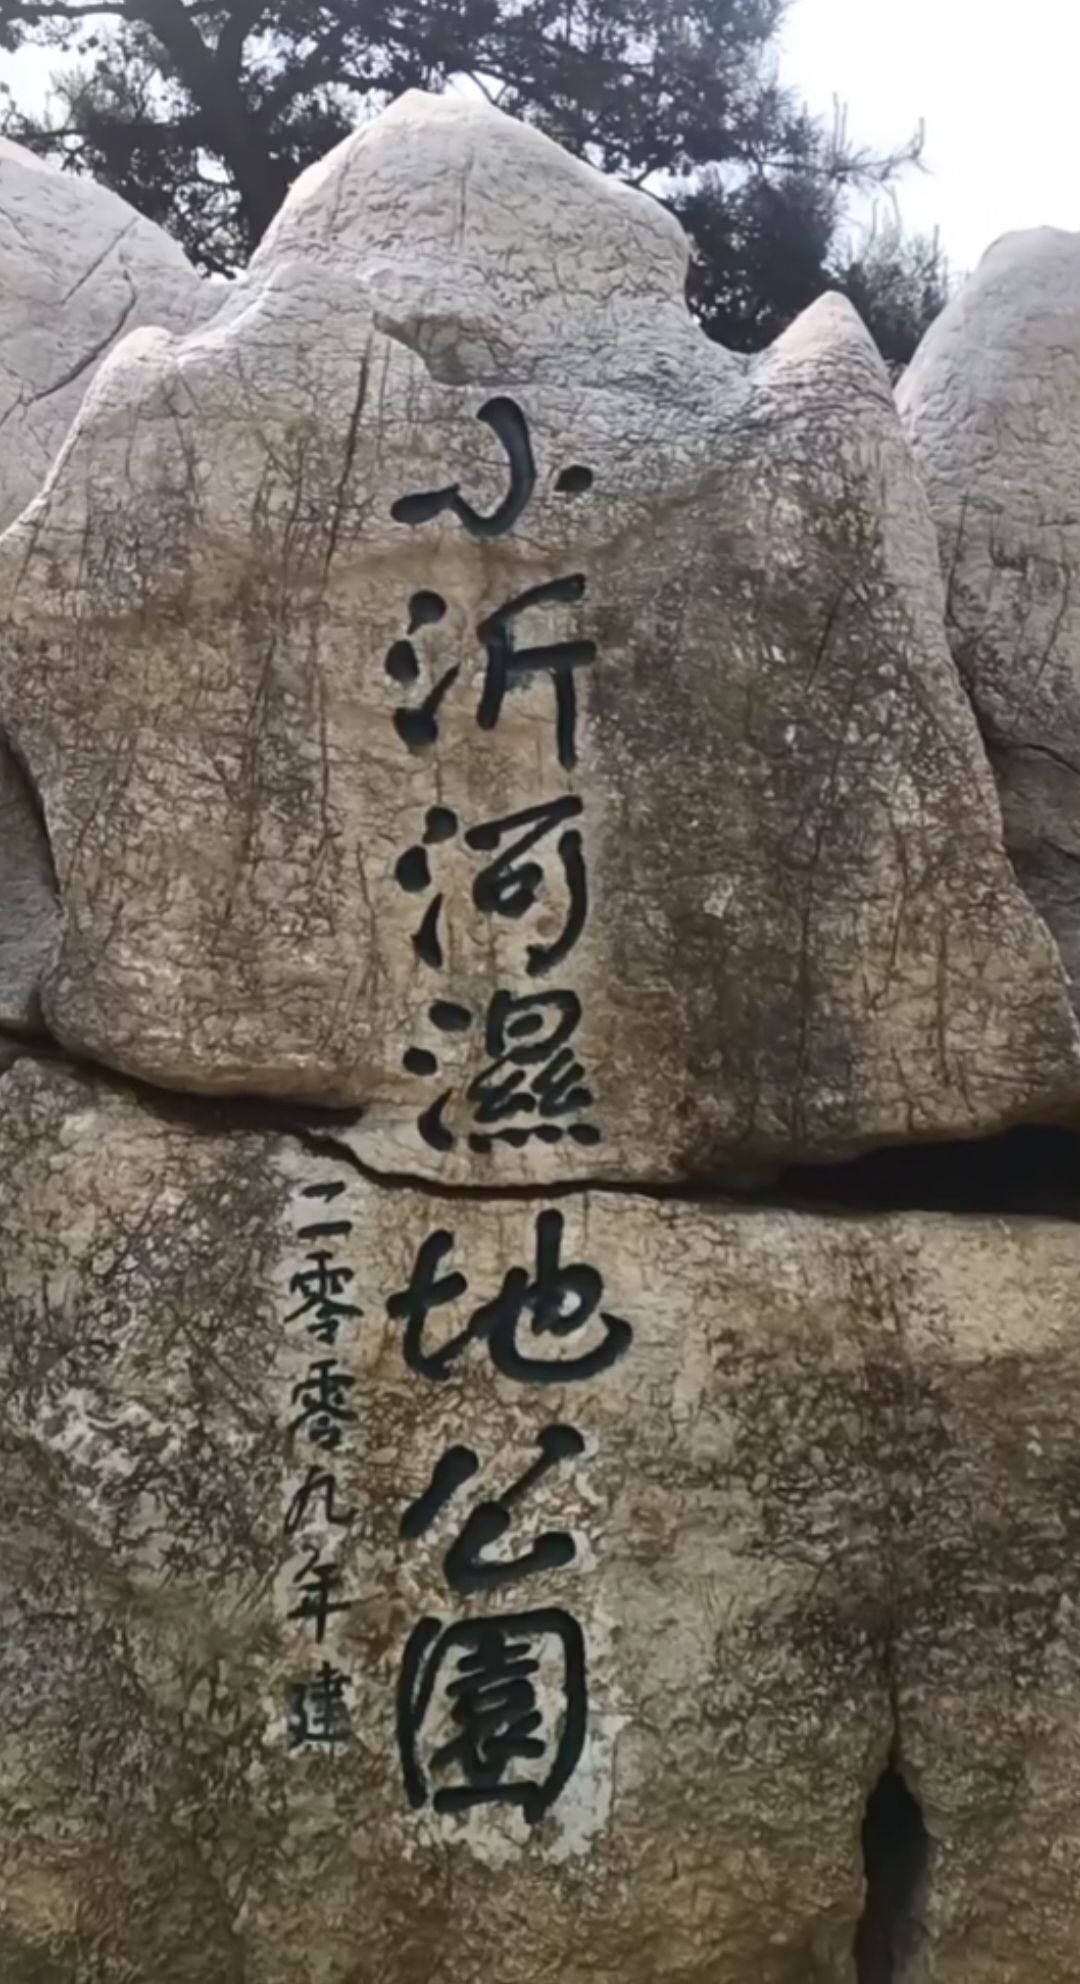 小沂河濕地公園
二零零九年建